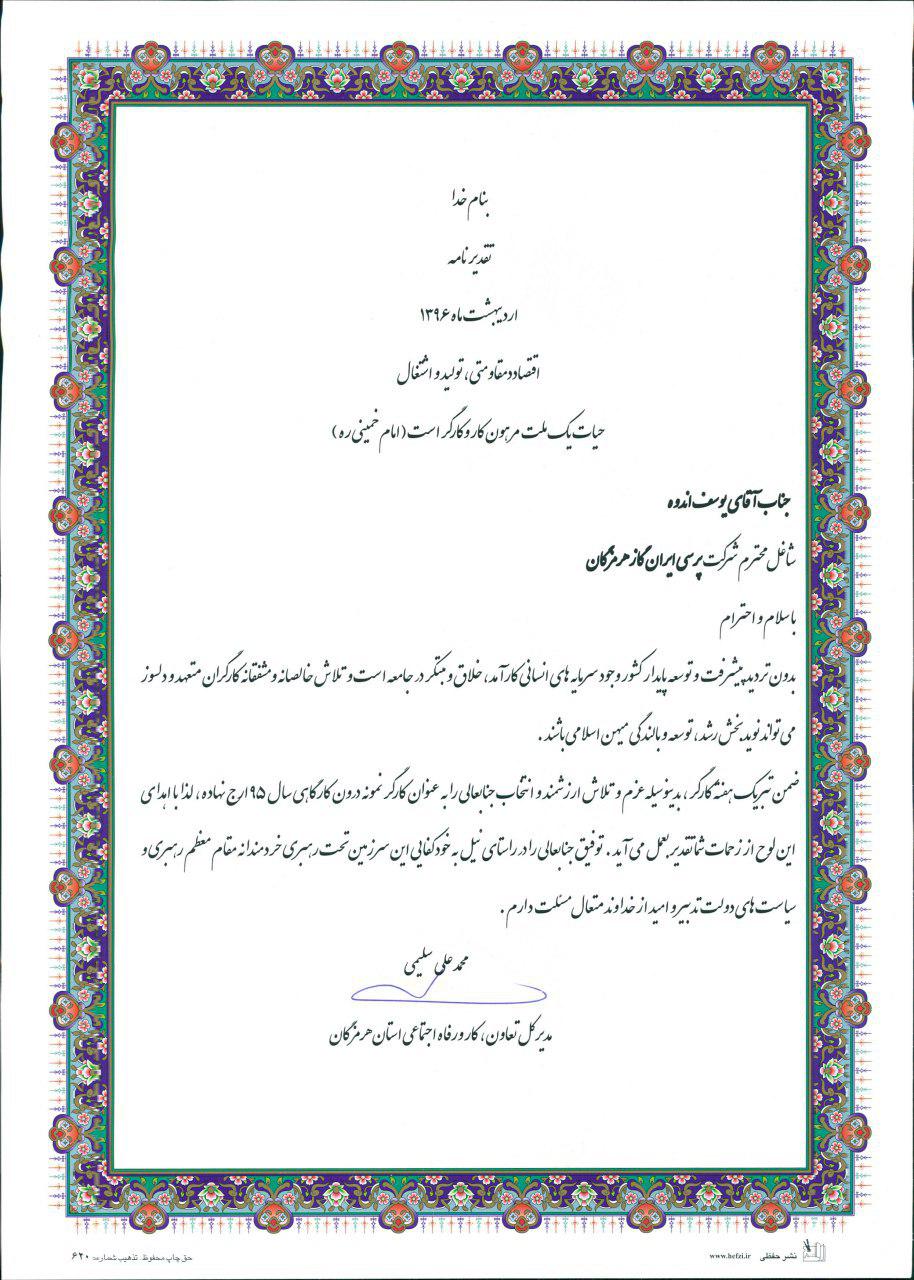 بنام خدا
تقدیر نامه
اردیبهشت ماه ۱۳۹۶
اقتصاد مقاومتی، تولید و اشتغال
حیات یک ملت مرهون کار و کارگر است (امام خمینی ره)
جناب آقای یوسف اندوه
شاغل محترم شرکت پرسی ایران گاز هرمزگان
با سلام و احترام
بدون تردید پیشرفت و توسعه پایدار کشور وجود سرمایه های انسانی کارآمد، خلاق و مبتکر در جامعه است و تلاش خالصانه و مشفقانه کارگران متعهد و دلسوز
می تواند نوید بخش رشد، توسعه و بالندگی میهن اسلامی باشند .
ضمن تبریک هفته کارگر، بدینوسیله عزم و تلاش ارزشمند و انتخاب جنابعالی را به عنوان کارگر نمونه درون کارگاهی سال ۹۵ ارج نهاده، لذا با اهدای
این لوح از زحمات شما تقدیر بعمل می آید . توفیق جنابعالی را در راستای نیل به خودکفایی این سرزمین تحت رهبری خردمندانه مقام معظم رهبری و
سیاست های دولت تدبیر و امید از خداوند متعال مسئلت دارم .
محمد علی سلیمی
مدیر کل تعاون، کار و رفاه اجتماعی استان هرمزگان
نشر حفظی www.hefzi.ir
حق چاپ محفوظ. تذهیب شماره: ۶۲۰